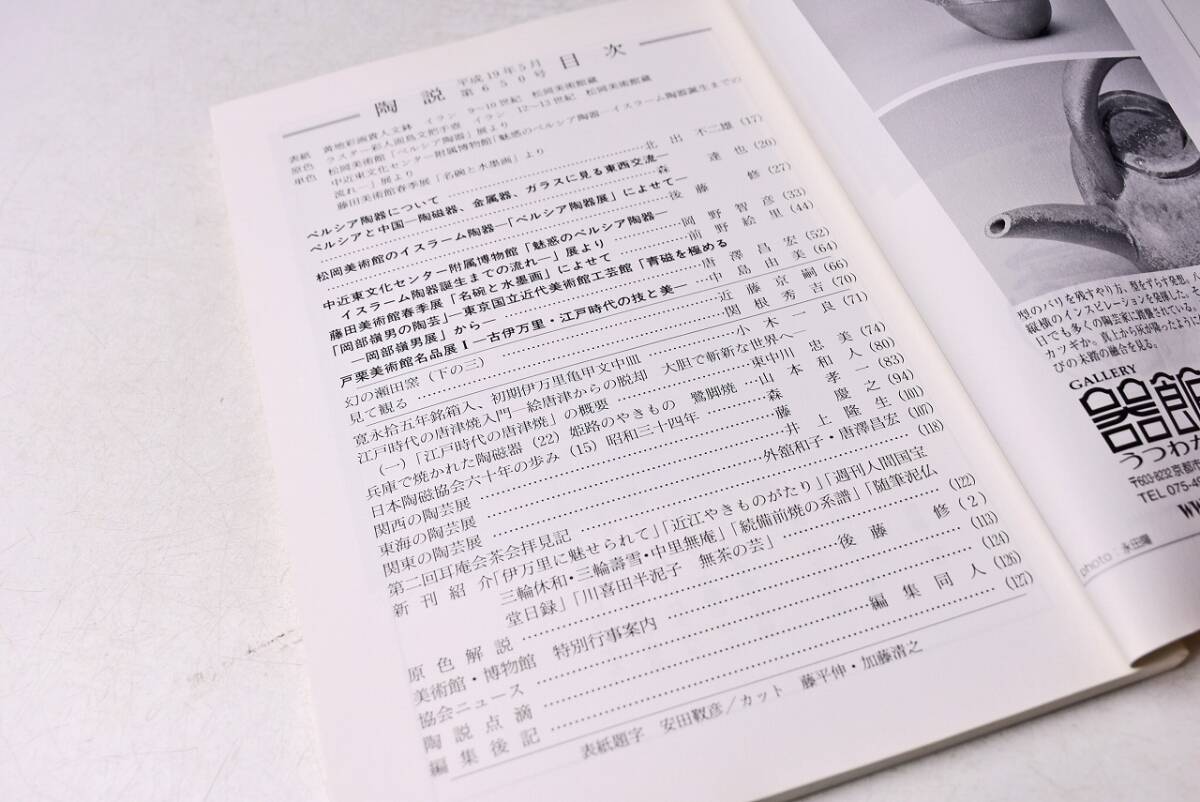 陶説 平成19年5月 第650号 目次
表紙 黄地彩画貴人文鉢 イラン 9〜10世紀 松岡美術館蔵
原色 ラスター彩人面鳥文把手壺 イラン 12〜13世紀 松岡美術館蔵
松岡美術館「ペルシア陶器」展より
単色 中近東文化センター附属博物館「魅惑のペルシア陶器―イスラーム陶器誕生までの
流れ―」展より
藤田美術館春季展「名碗と水墨画」より
ペルシア陶器について 北出不二雄 (17)
ペルシアと中国―陶磁器、金属器、ガラスに見る東西交流―
森達也 (20)
松岡美術館のイスラーム陶器―「ペルシア陶器展」によせて―
後藤修 (27)
中近東文化センター附属博物館「魅惑のペルシア陶器―
イスラーム陶器誕生までの流れ―」展より 岡野智彦 (33)
藤田美術館春季展「名碗と水墨画」によせて 前野絵里 (44)
「岡部嶺男の陶芸」―東京国立近代美術館工芸館「青磁を極める
―岡部嶺男展」から― 唐澤昌宏 (52)
戸栗美術館名品展Ⅰ―古伊万里・江戸時代の技と美― 中島由美 (64)
幻の瀬田窯(下の三) 近藤京嗣 (66)
見て観る 関根秀吉 (70)
寛永拾五年銘箱入、初期伊万里亀甲文中皿 小木一良 (71)
江戸時代の唐津焼入門―絵唐津からの脱却 大胆で斬新な世界へ
(一)「江戸時代の唐津焼」の概要 東中川忠美 (74)
兵庫で焼かれた陶磁器(22) 姫路のやきもの 鷺脚焼 山本和人 (80)
日本陶磁協会六十年の歩み(15)昭和三十四年 森孝一 (83)
関西の陶芸展 藤慶之 (94)
東海の陶芸展 井上隆生 (101)
関東の陶芸展 外舘和子・唐澤昌宏 (107)
第二回耳庵会茶会拝見記 (118)
新刊紹介「伊万里に魅せられて」「近江やきものがたり」「週刊人間国宝
三輪休和・三輪壽雪・中里無庵」「続備前焼の系譜」「随筆泥仏
堂日録」「川喜田半泥子 無茶の芸」 (122)
原色解説 後藤修 (2)
美術館・博物館 特別行事案内 (113)
協会ニュース (124)
陶説点滴 編集同人 (126)
編集後記 (127)
表紙題字 安田靫彦/カット 藤平伸・加藤清之
型のバリを残すやり方。型をずらす発想。
縦横のインスピレーションを発揮した。
びの末路の融合を見る。
GALLERY
器館
うつわか
〒603-8232 京都
TEL 075-4
photo : 永田陽